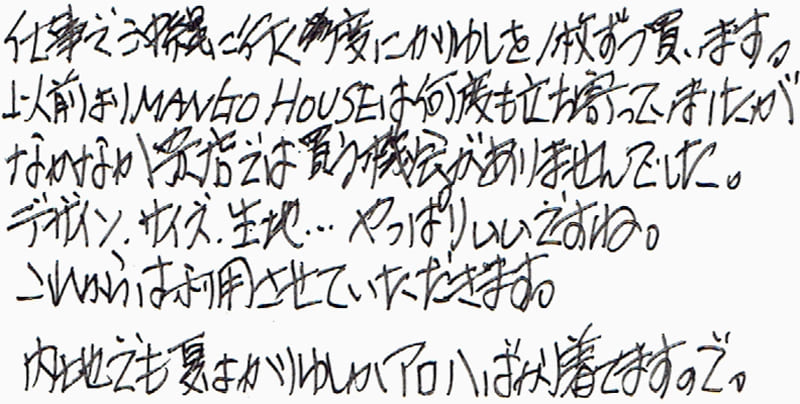 仕事で沖縄に行く度にかりゆしを1枚ずつ買います。
以前よりMANGO HOUSEは何度も立ち寄っていましたが
なかなか実店では買う機会がありませんでした。
デザイン、サイズ、生地…やっぱりいいですね。
これからは利用させていただきます。
内地でも夏はかりゆしかアロハばかり着てますので。